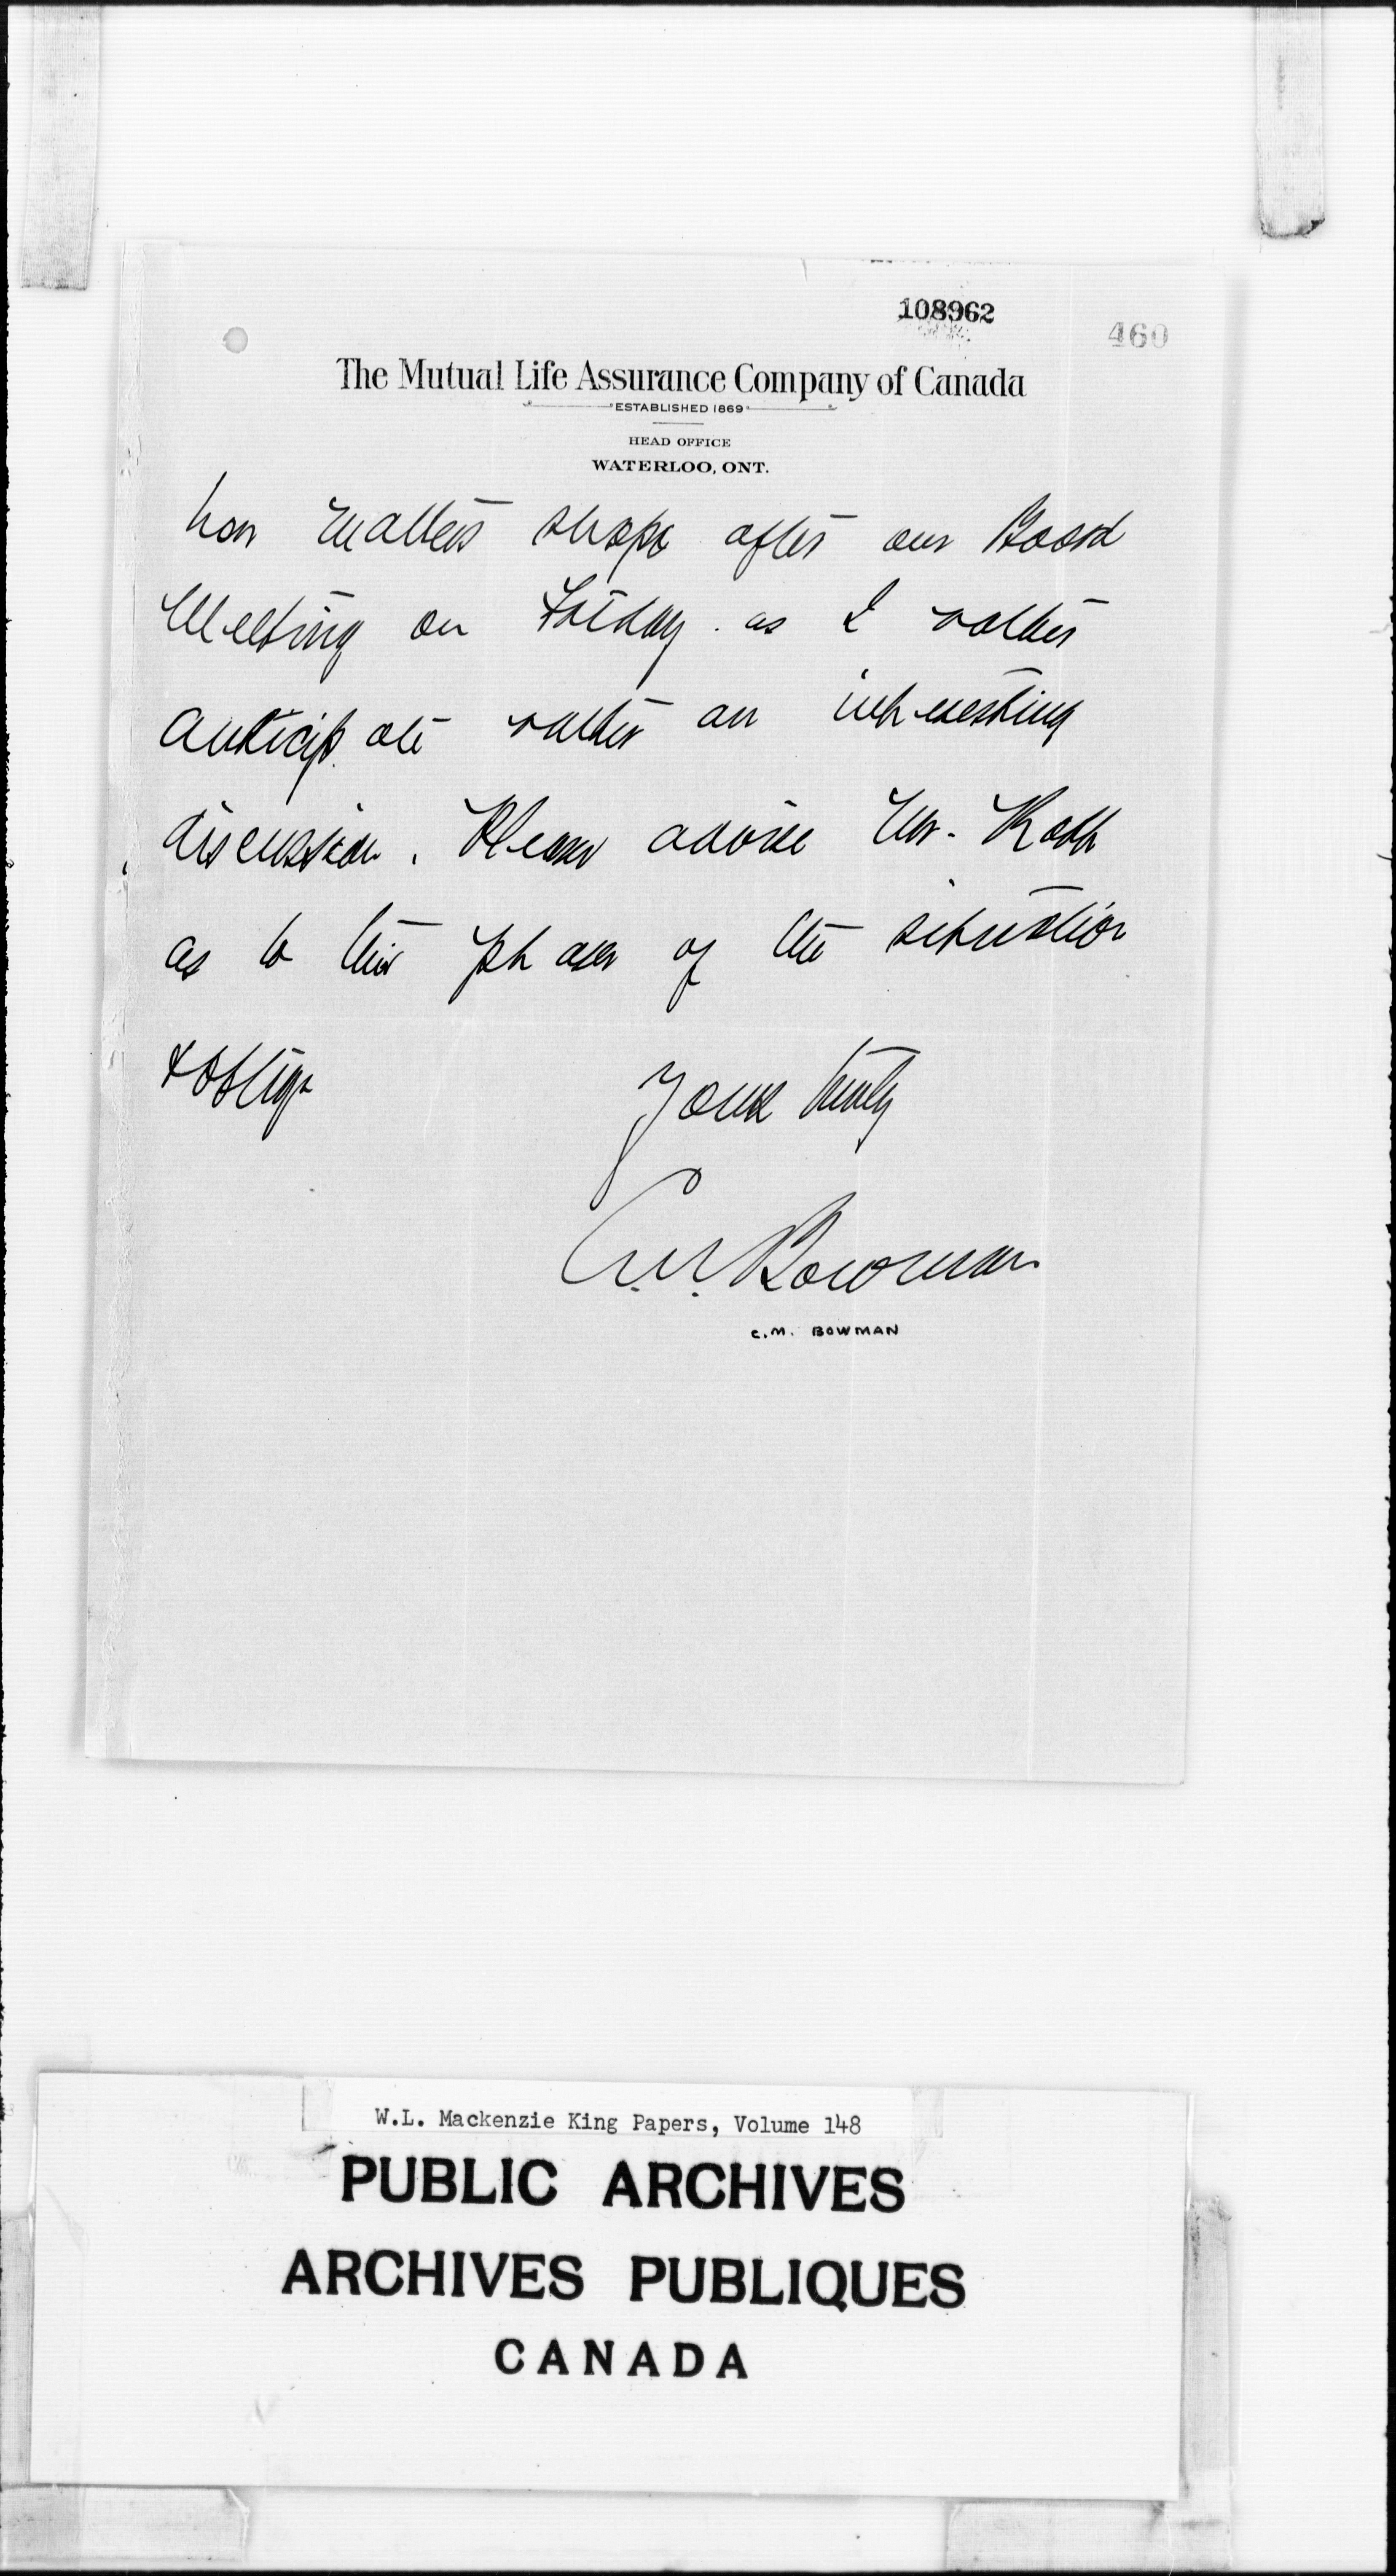 108962
460
The Mutual Life Assurance Company of Canada
ESTABLISHED 1869
HEAD OFFICE
WATERLOO, ONT.
how matters shape after our Board
Meeting on Friday. as I rather
anticipate rather an interesting
discussion. Please advise Mr.
as to this phase of the situation
& oblige
Yours truly
C.M. Bowman
C.M. BOWMAN
W.L. Mackenzie King Papers, Volume 148
PUBLIC ARCHIVES
ARCHIVES PUBLIQUES
CANADA